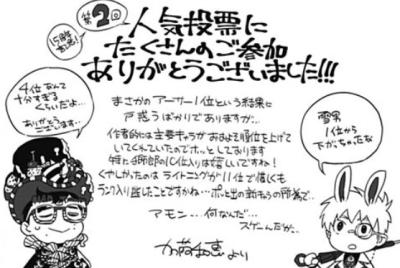 第2回
人気投票に
たくさんのご参加
ありがとうございました!!!
4位なんて
十分すぎる
くらいだよ…
ありがとう
ございます…
まさかのアーサー1位という結果に
戸惑うばかりでありますが、
作者的には主要キャラがおおよそ順位を上げて
いてくれていたのでホッとしております
獅郎の10位入りは嬉しいですね!
くやしかったのはライトニングが11位で惜しくも
ランク入り逃したことですかね…ポッと出の新キャラの所為で…
アモン…何なんだ…
スゲーんだが…
加藤和恵より
雪男
1位から
下がっちゃったな